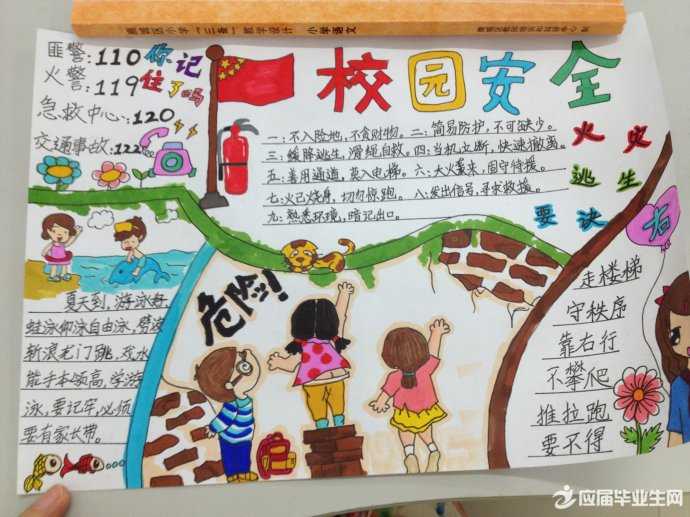 小学语文
匪警:110
火警:119
急救中心:120
交通事故:122
你记
住了吗
校园安全
一:不入险地,不贪财物。二:简易防护,不可缺少。
三:缓降逃生,滑绳自救。四:当机立断,快速撤离。
五:善用通道,莫入电梯。六:大火袭来,固守待援。
七:火已烧身,切勿惊跑。八:发出信号,寻求救援。
九:熟悉环境,暗记出口。
火灾
逃生
要诀
危险!
夏天到,游泳好
蛙泳仰泳自由泳,劈波
斩浪龙门跳,戏水
能手本领高,学游
泳,要记牢,必须
要有家长带。
右
走楼梯
守秩序
靠右行
不攀爬
推拉跑
要不得
应届毕业生网